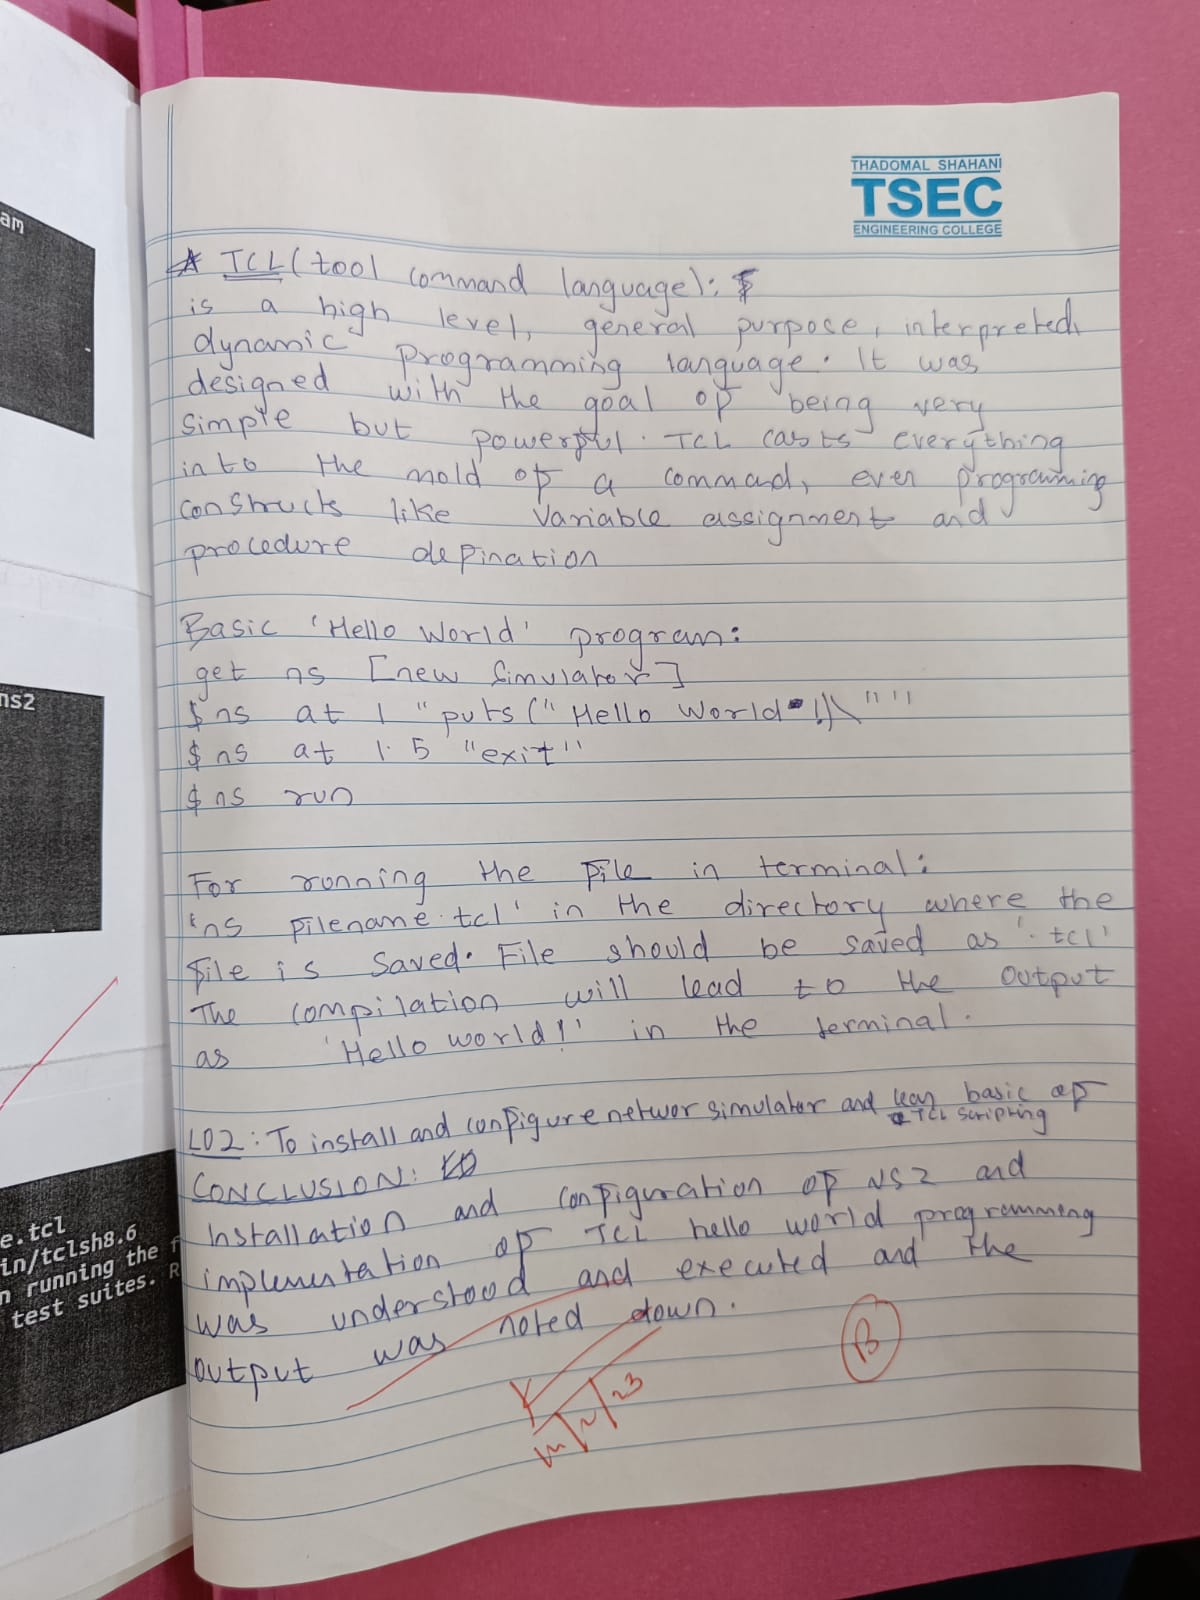 am
ns2
e.tcl
in/tclsh8.6
n running the f
test suites. R
THADOMAL SHAHANI
TSEC
ENGINEERING COLLEGE
* TCL (tool command language):
is a high level, general purpose, interpreted,
dynamic programming language. It was
designed with the goal of being very
simple but powerful. TCL casts everything
into the mold of a command, even programming
constructs like variable assignment and
procedure defination
Basic 'Hello World' program:
get ns [new Simulator]
$ns at 1 "puts (" Hello World !)\" "
$ns at 1.5 "exit"
$ns run
For running the file in terminal:
'ns filename.tcl' in the directory where the
file is saved. File should be saved as '.tcl'
The compilation will lead to the output
as 'Hello world!' in the terminal.
LO2: To install and configure networ simulator and basic of
TCL Scripting
CONCLUSION:
Installation and configuration of NS2 and
implementation of TCL hello world programming
was understood and executed and the
output was noted down.
B